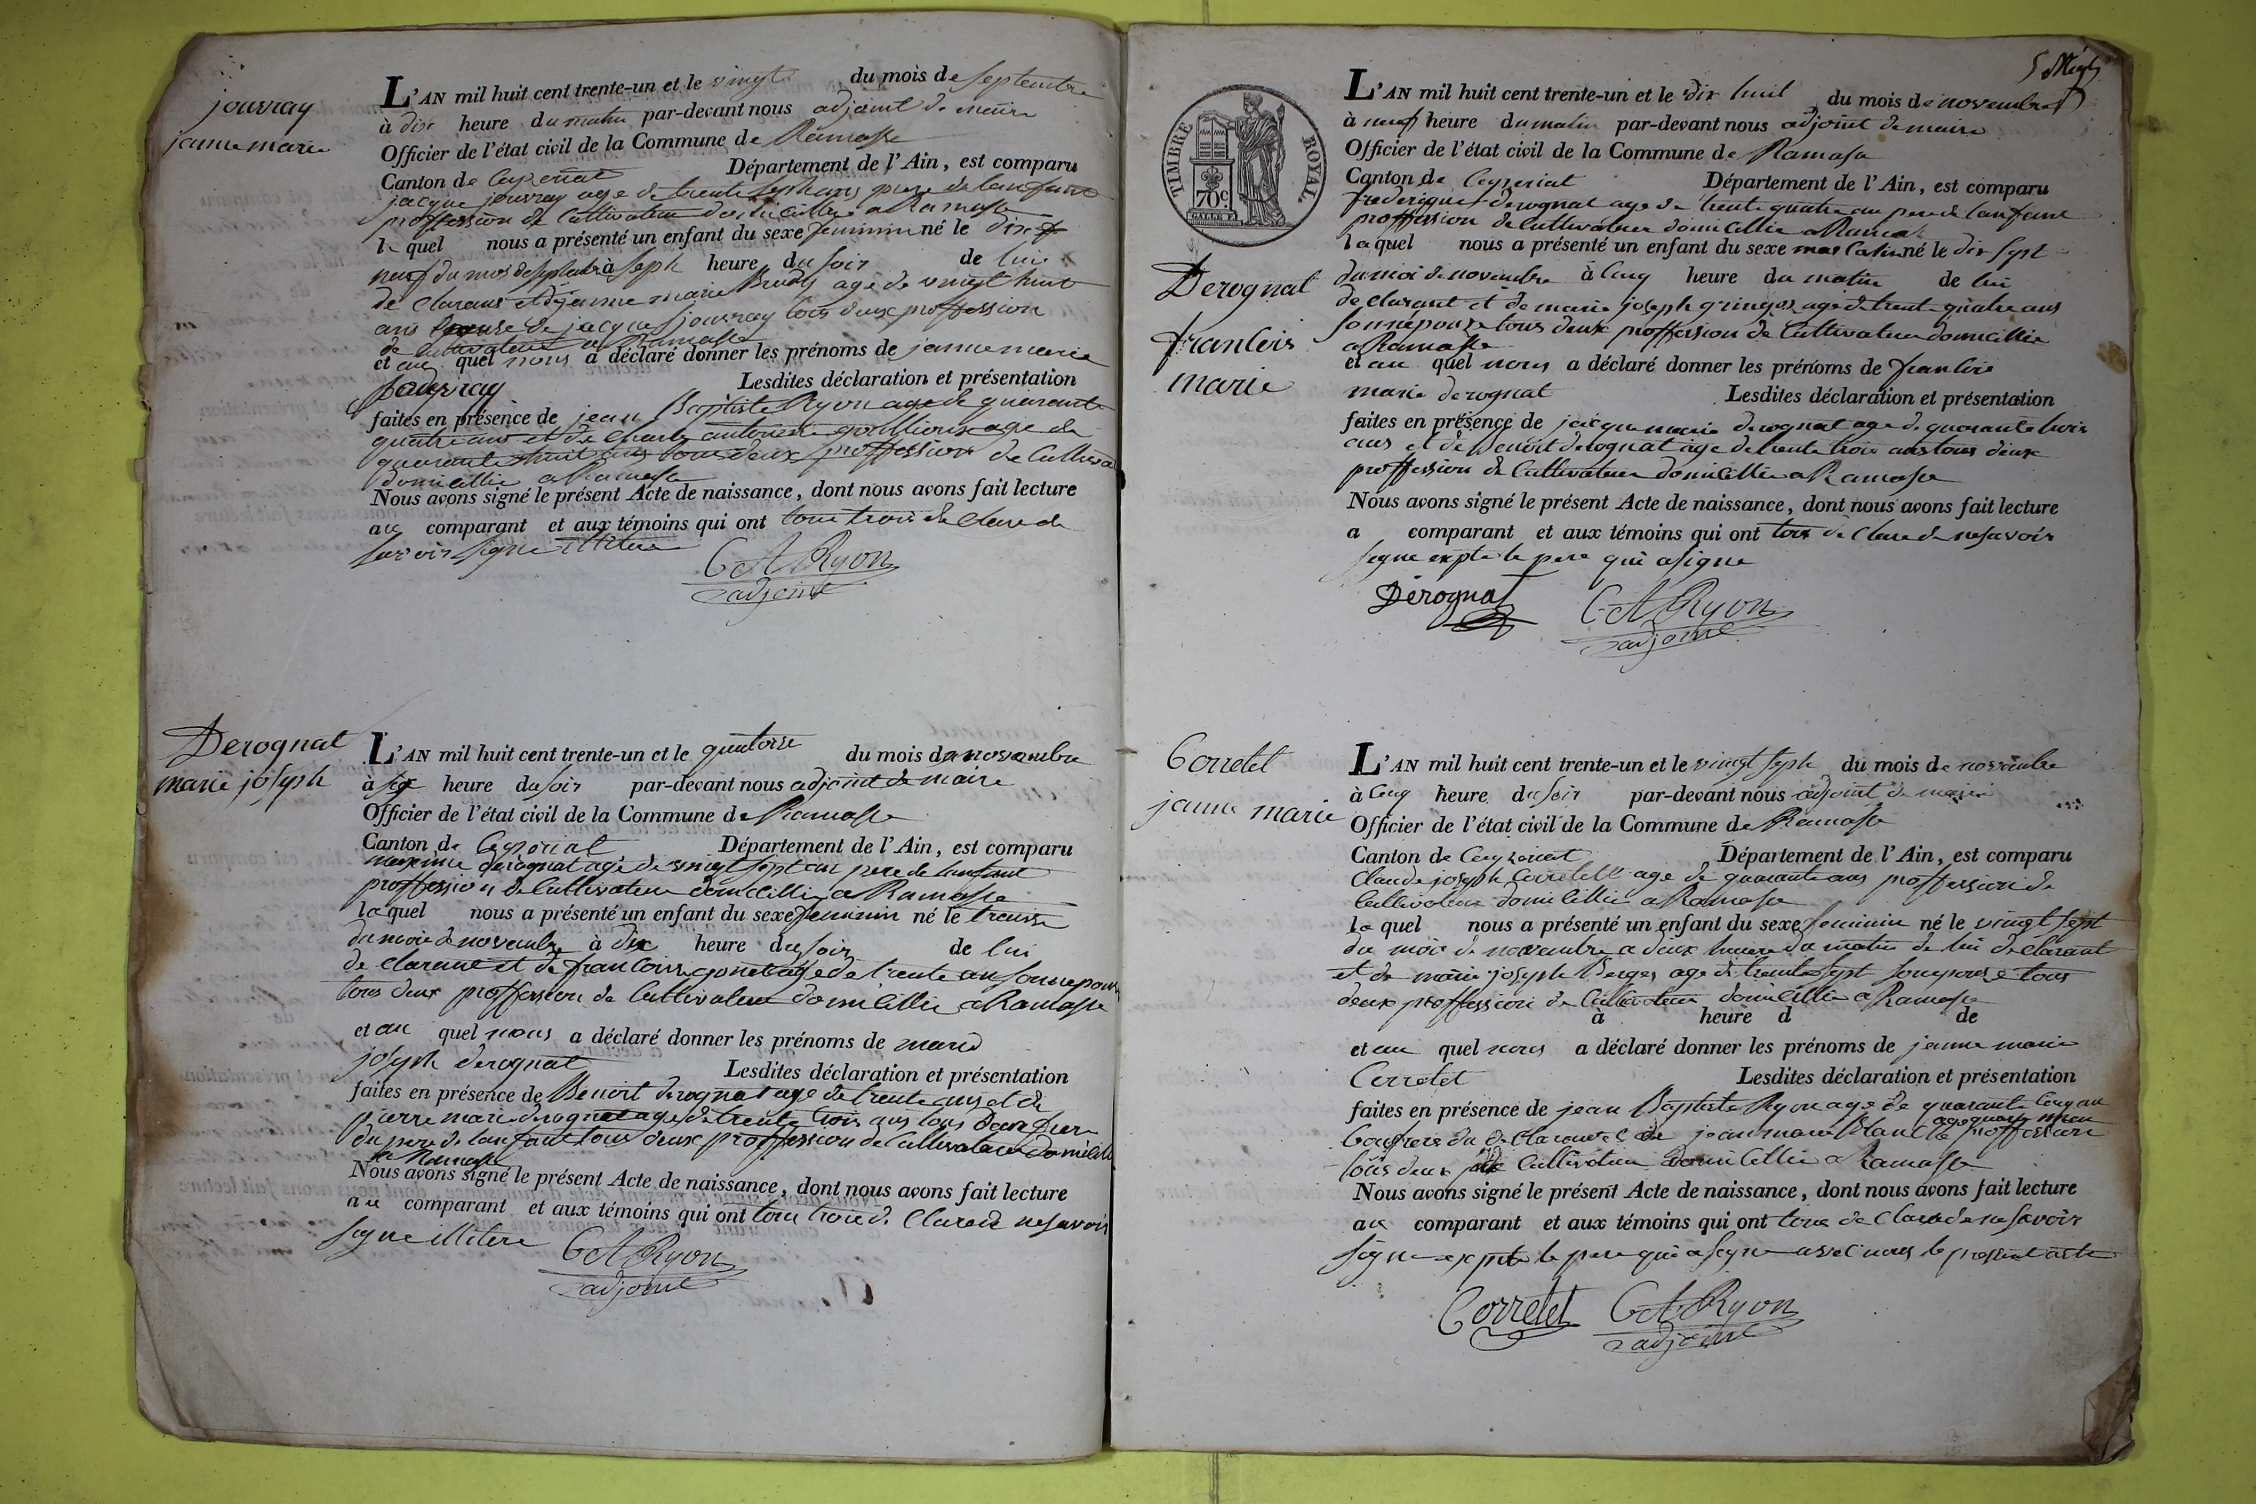 jouvray
janne marie
L'AN mil huit cent trente-un et le vingt du mois de septembre
à dix heure du matin par-devant nous adjoint de maire
Officier de l'état civil de la Commune de Ramasse
Canton de Ceyzeriat Département de l'Ain, est comparu
jacque jouvray age de trente sept ans pere de lanfant
proffession de Cultivateur domicillie a Ramasse
le quel nous a présenté un enfant du sexe feminin né le dix
neuf du mois de septembre à sept heure du soir de lui
de clarant et de janne marie age de vingt huit
ans epouse de jacque jouvray tous deux proffession
de cultivateur a Ramasse
et au quel nous a déclaré donner les prénoms de janne marie
jouvray Lesdites déclaration et présentation
faites en présence de jean Baptiste Ryon age de quarante
quatre ans et de Charle antoine age de
quarante huit ans tous deux proffession de Cultiva
domicillie a Ramasse
Nous avons signé le présent Acte de naissance, dont nous avons fait lecture
au comparant et aux témoins qui ont tous trois de clare de
savoir signe illitere
C A Ryon
adjoint
Derognat
marie joseph
L'AN mil huit cent trente-un et le quatorze du mois de novembre
à six heure du soir par-devant nous adjoint de maire
Officier de l'état civil de la Commune de Ramasse
Canton de Ceyzeriat Département de l'Ain, est comparu
derognat age de vingt sept ans pere de lanfant
proffession de Cultivateur domicillie a Ramasse
le quel nous a présenté un enfant du sexe feminin né le treize
du mois de novembre à dix heure du soir de lui
de clarant et de francoise age de trente ans son epouse
tous deux proffession de Cultivateur domicillie a Ramasse
et au quel nous a déclaré donner les prénoms de marie
joseph derognat Lesdites déclaration et présentation
faites en présence de Benoit derognat age de trente ans et de
pierre marie derognat age de trente trois ans tous deux frere
du pere de lanfant tous deux proffession de Cultivateur domicillie
a Ramasse
Nous avons signé le présent Acte de naissance, dont nous avons fait lecture
au comparant et aux témoins qui ont tous trois de Clare de ne savoir
signe illitere
C A Ryon
adjoint
TIMBRE ROYAL
70 c.
Derognat
francois
marie
L'AN mil huit cent trente-un et le dix huit du mois de novembre
à neuf heure du matin par-devant nous adjoint de maire
Officier de l'état civil de la Commune de Ramasse
Canton de Ceyzeriat Département de l'Ain, est comparu
frederique derognat age de trente quatre ans pere de lanfant
proffession de Cultivateur domicillie a Ramasse
le quel nous a présenté un enfant du sexe mas Culin né le dix sept
du moi de novembre à Cinq heure du matin de lui
de clarant et de marie joseph age de trente quatre ans
sonne pouze tous deux proffession de Cultivateur domicillie
a Ramasse
et au quel nous a déclaré donner les prénoms de francois
marie derognat Lesdites déclaration et présentation
faites en présence de jacque marie derognat age de quarante trois
ans et de Benoit derognat age de trente trois ans tous deux
proffession de Cultivateur domicillie a Ramasse
Nous avons signé le présent Acte de naissance, dont nous avons fait lecture
a comparant et aux témoins qui ont tous de Clare de ne savoir
signe expte le pere qui a signe
Derognat C A Ryon
adjoint
Corretet
janne marie
L'AN mil huit cent trente-un et le vingt sept du mois de novembre
à Cinq heure du soir par-devant nous adjoint de maire
Officier de l'état civil de la Commune de Ramasse
Canton de Ceyzeriat Département de l'Ain, est comparu
Claude joseph Corretet age de quarante ans proffession de
Cultivateur domicillie a Ramasse
le quel nous a présenté un enfant du sexe feminin né le vingt sept
du moi de novembre a deux heure du matin de lui de clarant
et de marie joseph Berger age de trente sept son epouse tous
deux proffession de Cultivateur domicillie a Ramasse
à heure d de
et au quel nous a déclaré donner les prénoms de janne marie
Corretet Lesdites déclaration et présentation
faites en présence de jean Baptiste Ryon age de quarante Cinq an
du de Clarant et de jean marie proffession
tous deux Cultivateur domicillie a Ramasse
Nous avons signé le présent Acte de naissance, dont nous avons fait lecture
au comparant et aux témoins qui ont tous de Clare de ne savoir
signe exepte le pere qui a signe avec nous le present acte
Corretet C A Ryon
adjoint